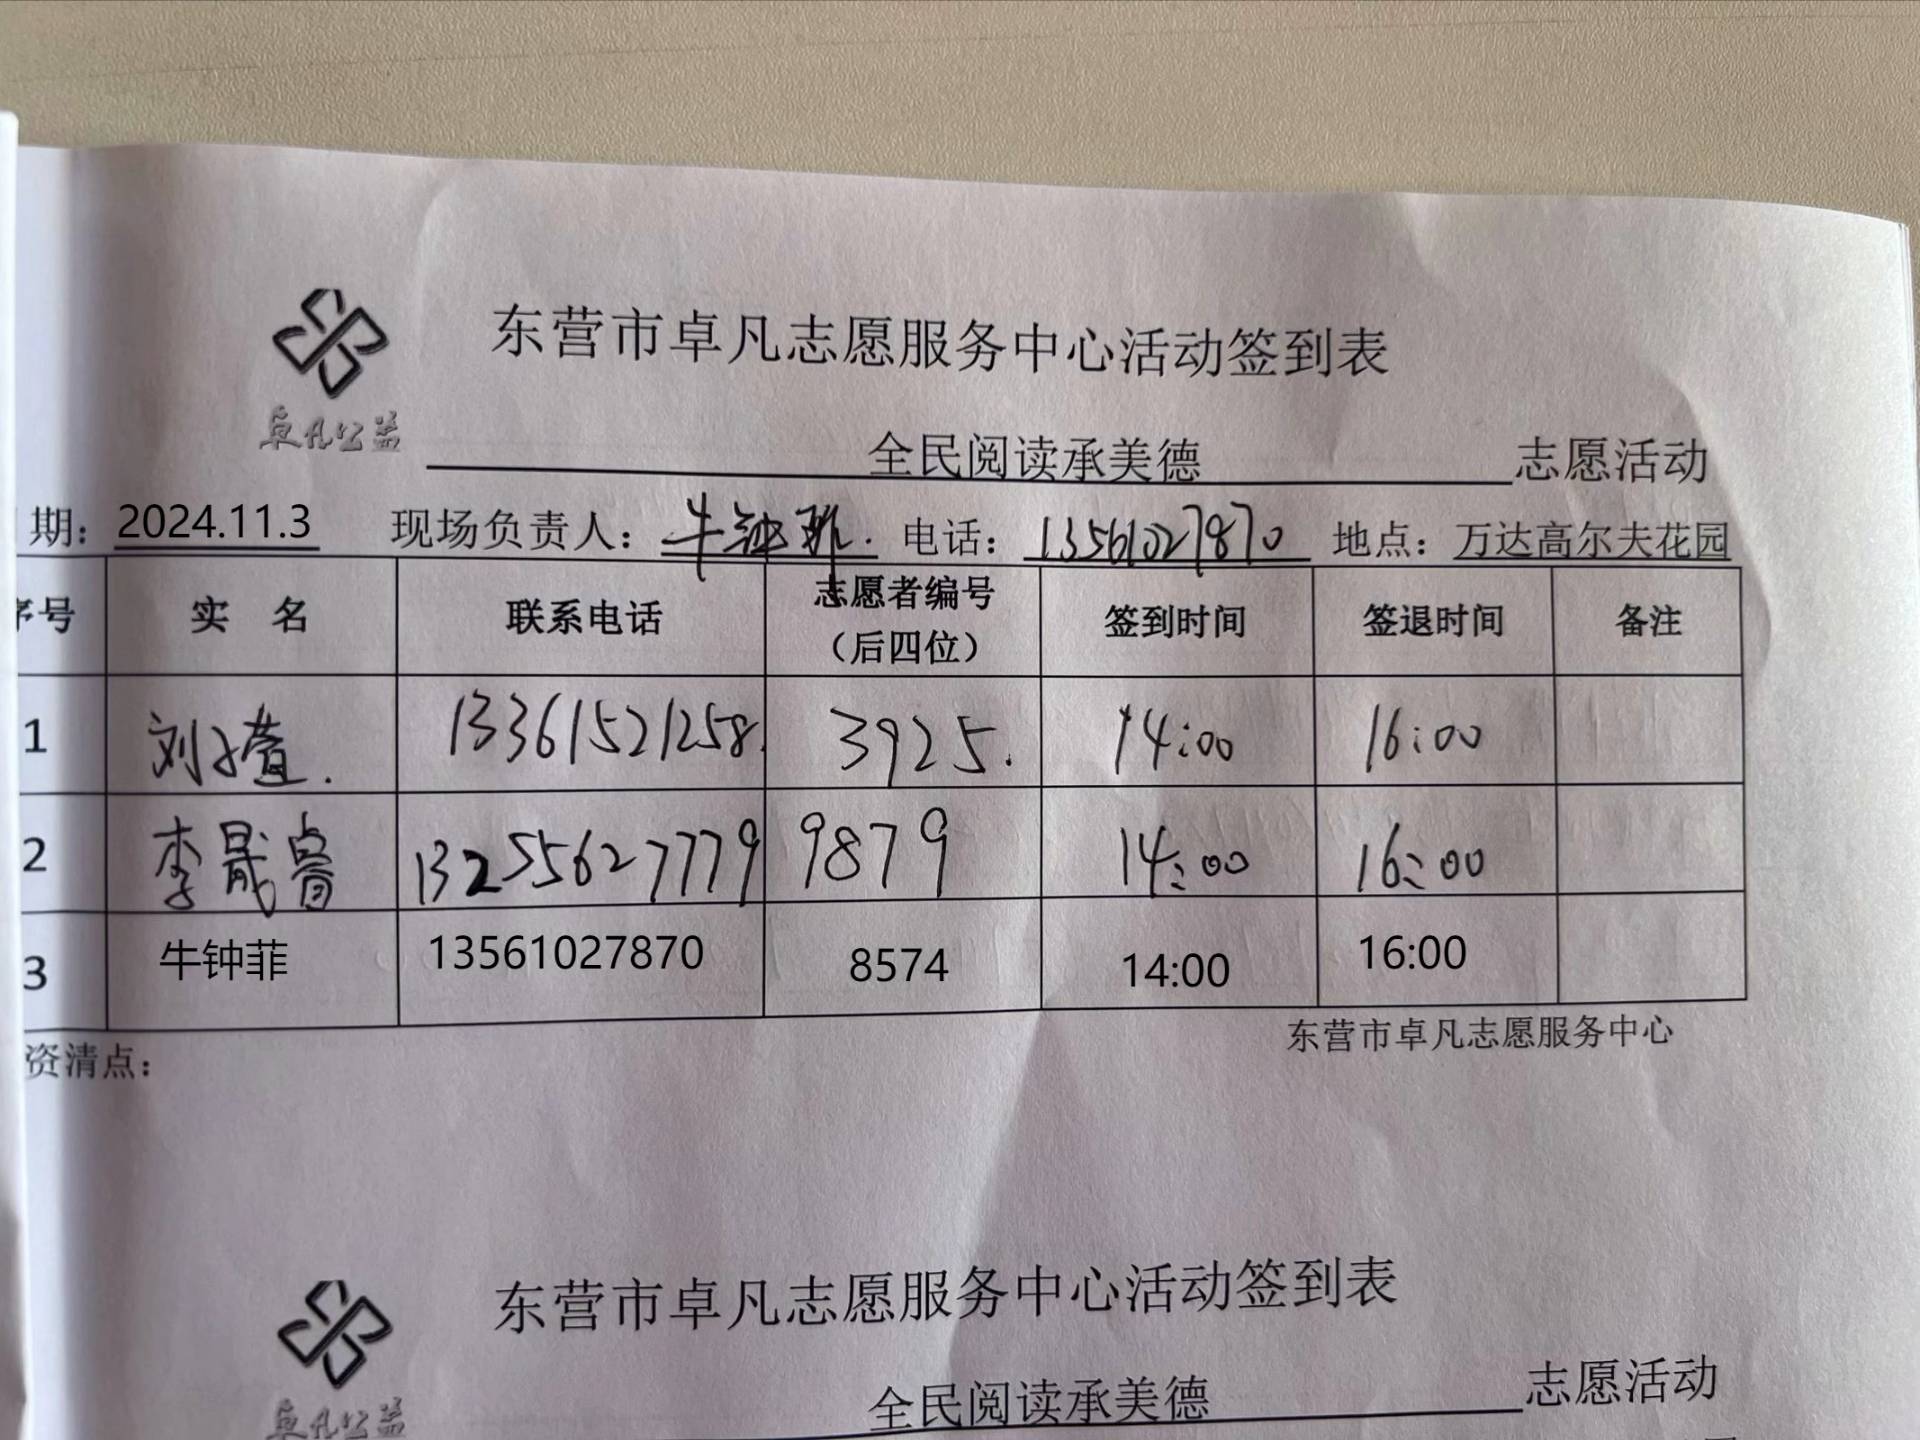 东营市卓凡志愿服务中心活动签到表
卓凡公益
全民阅读承美德 志愿活动
期：2024.11.3 现场负责人：牛钟菲. 电话：13561027870 地点：万达高尔夫花园
序号 实 名 联系电话 志愿者编号（后四位） 签到时间 签退时间 备注
1 刘子萱. 13361521258. 3925. 14:00 16:00
2 李晟睿 13255627779 9879 14:00 16:00
3 牛钟菲 13561027870 8574 14:00 16:00
资清点：
东营市卓凡志愿服务中心
东营市卓凡志愿服务中心活动签到表
卓凡公益
全民阅读承美德 志愿活动